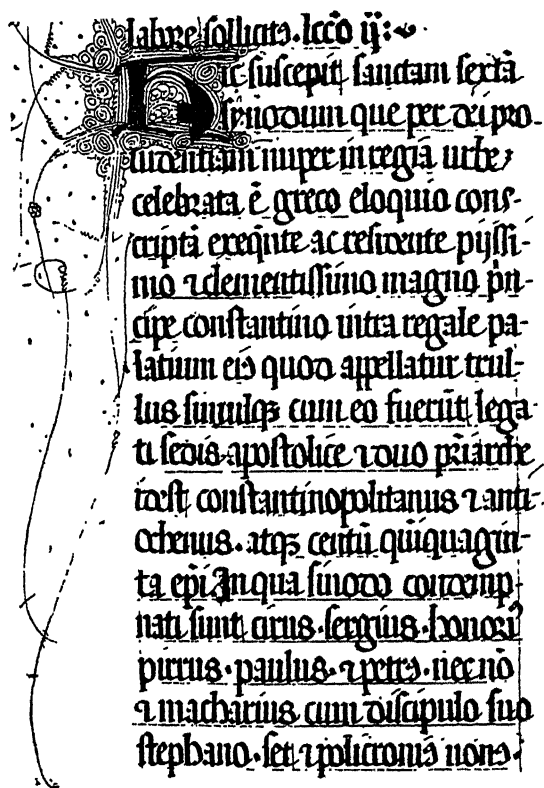 labore sollicitꝰ. lcc̄o ii:
Hic suscepit sanctam sextā
synodum que per dei pro-
uidentiam nuper in regia urbe
celebrata ē greco eloquio cons-
criptā exeqn̄te ac residente pijssi-
mo ⁊ clementissimo magno pn̄-
cipe constantino intra regale pa-
latium eiꝰ quod appellatur trul-
lus simulqꝫ cum eo fuerūt lega-
ti sedis apostolice ⁊ duo pr̄iarche
idest constantinopolitanus ⁊ anti-
ochenus. atqꝫ centū quīquagin-
ta ep̄i In qua sinodo contemp-
nati sunt cirus. sergius. honoriꝰ
pirrus. paulus. ⁊ petrꝰ. necnō
⁊ macharius cum discipulo suo
stephano. set ⁊ policroniꝰ nouꝰ.